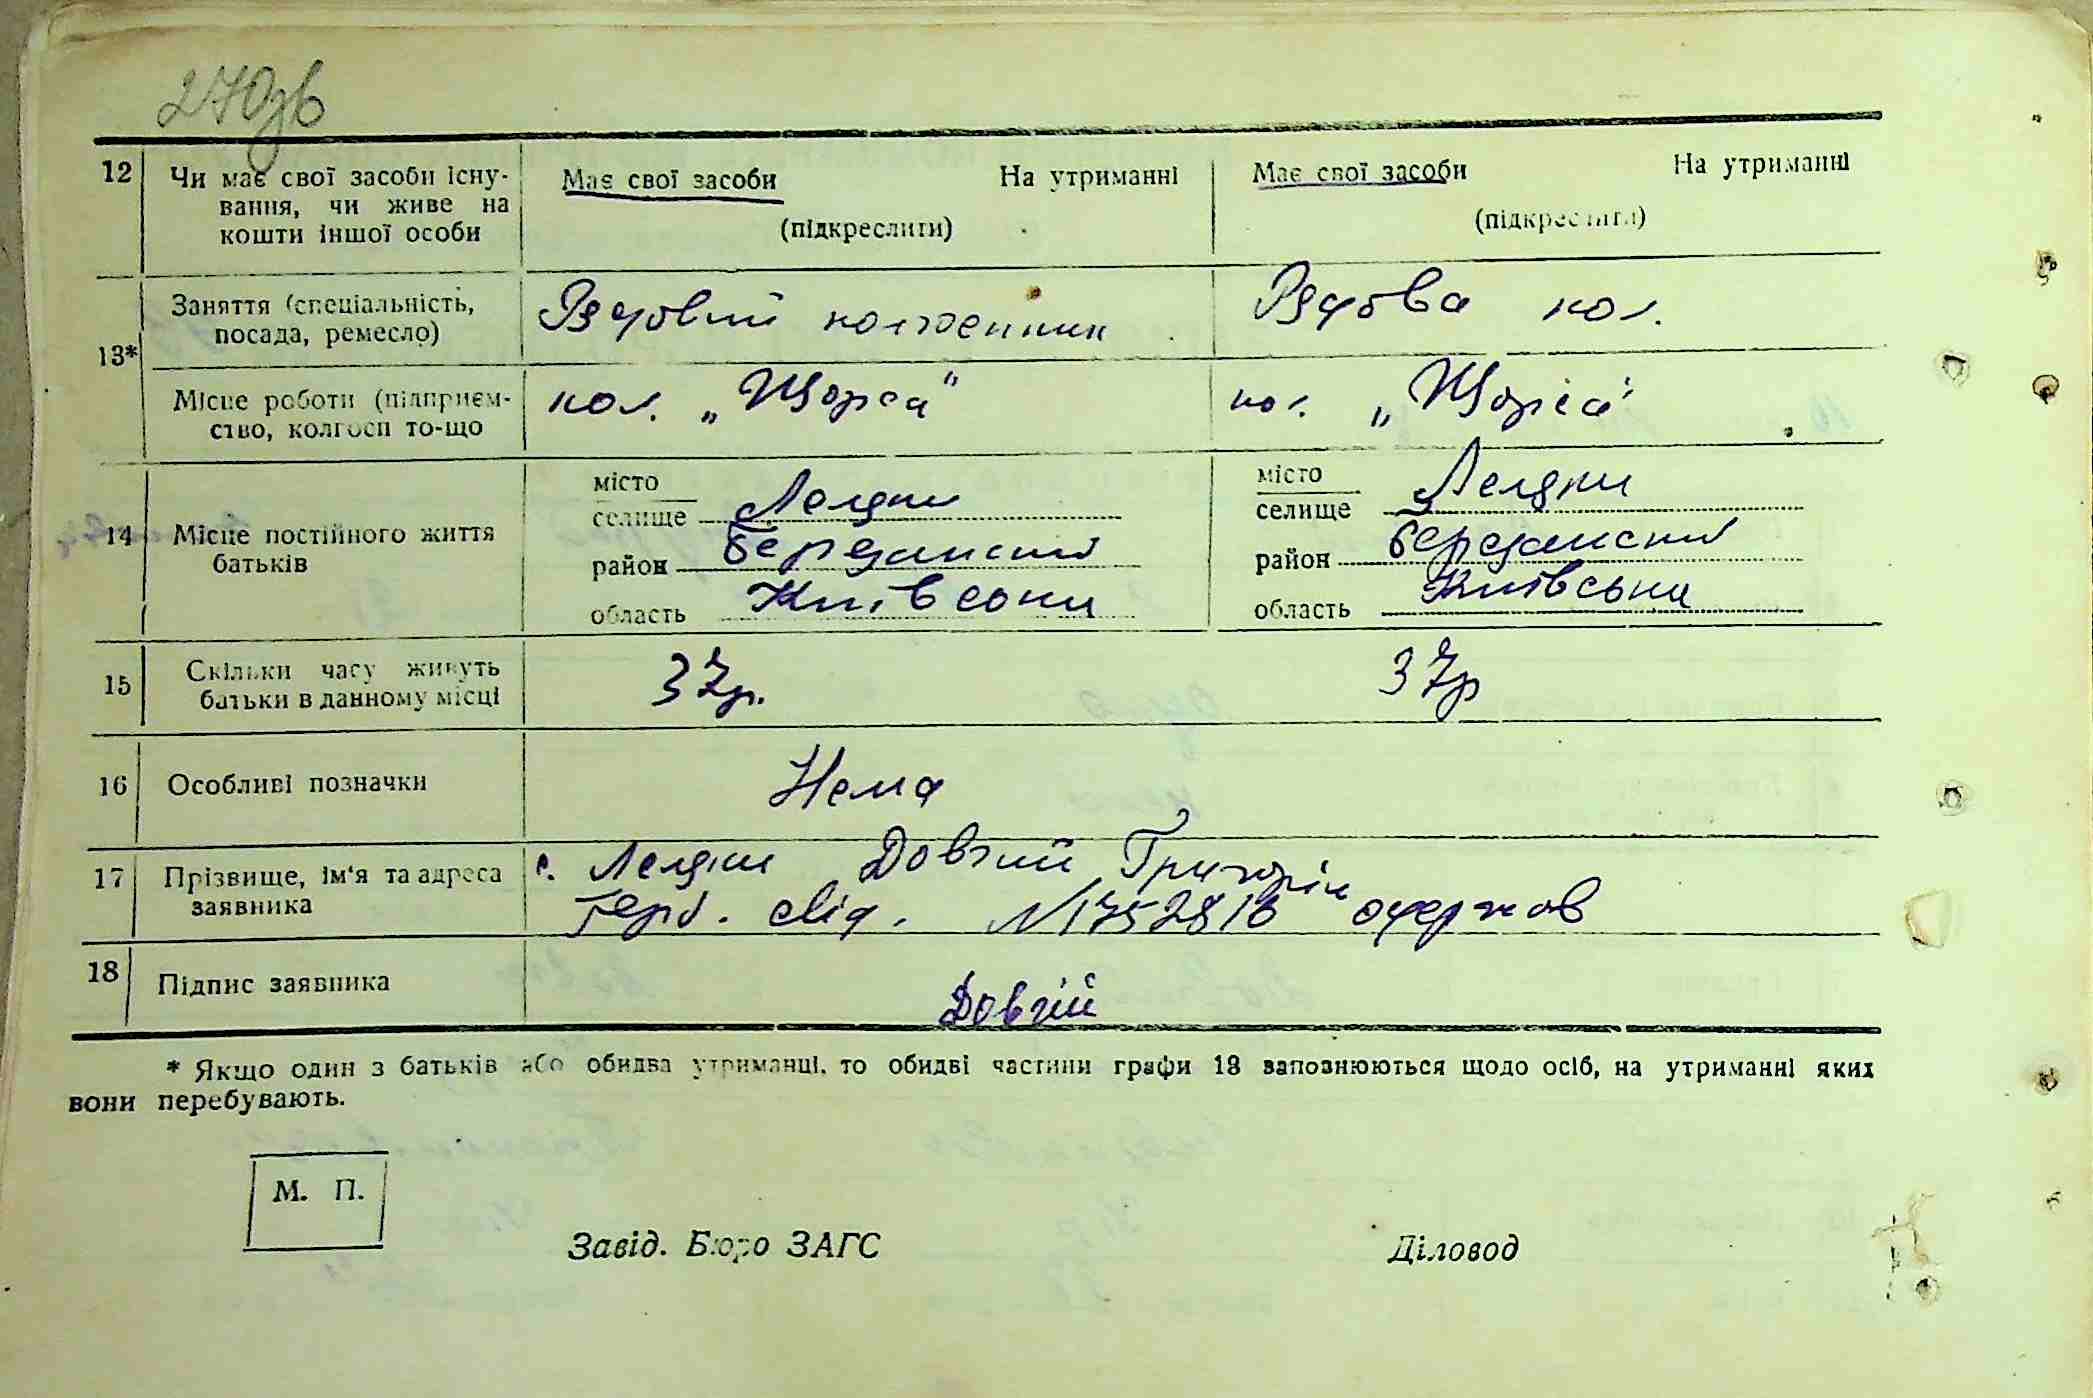 270зв
12 Чи має свої засоби існу- Має свої засоби На утриманні Має свої засоби На утриманні
вання, чи живе на (підкреслити) (підкреслити)
кошти іншої особи
13* Заняття (спеціальність, Рядовий колгоспник Рядова кол.
посада, ремесло)
Місце роботи (підприєм- кол. „Щорса" кол. „Щорса"
ство, колгосп то-що
14 Місце постійного життя батьків
місто
селище Леляки
район Березанський
область Київсока
місто
селище Леляки
район Березанський
область Київська
15 Скільки часу живуть 37р. 37р
батьки в данному місці
16 Особливі позначки Нема
17 Прізвище, ім'я та адреса с. Леляки Довгий Григорій
заявника Герб. свід. N одержав
18 Підпис заявника Довгий
* Якщо один з батьків або обидва утриманці, то обидві частини графи 13 заповнюються щодо осіб, на утриманні яких
вони перебувають.
М. П.
Завід. Бюро ЗАГС Діловод